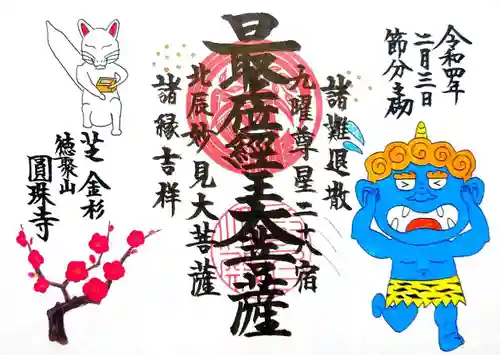 令和四年
二月三日
節分立卯
諸難退散
九曜尊星二十八宿
最位経王大菩薩
北辰妙見大菩薩
諸縁吉祥
芝金杉
徳聚山
圓珠寺